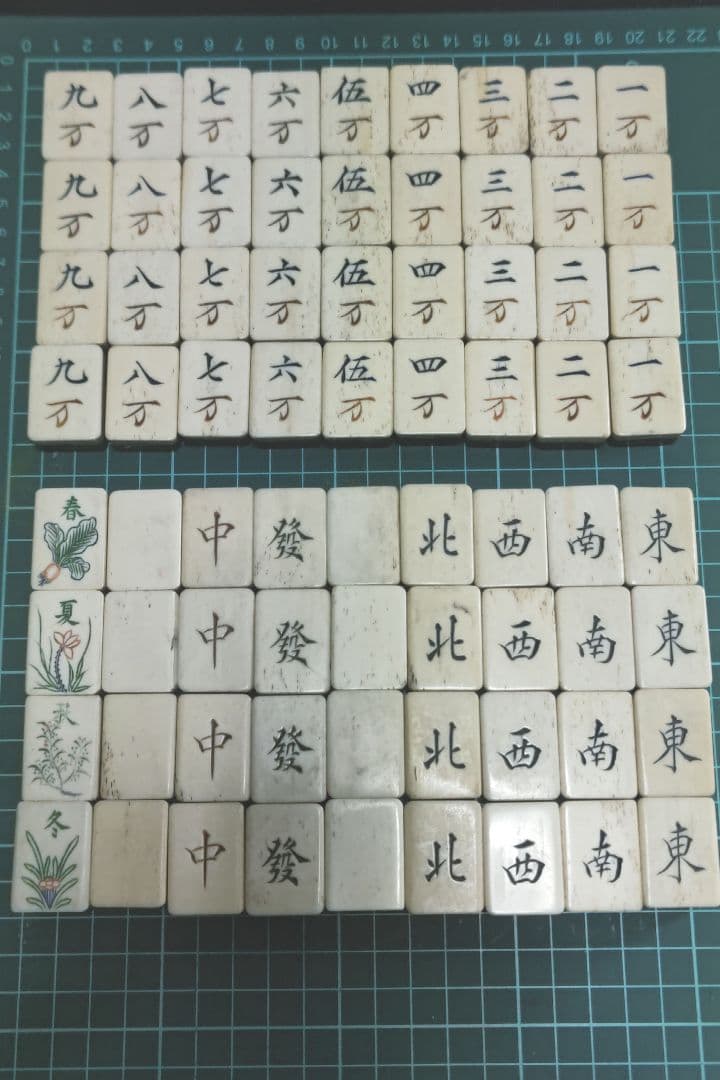 0 1 2 3 4 5 6 7 8 9 10 11 12 13 14 15 16 17 18 19 20 21 22
九 八 七 六 伍 四 三 二 一
万 万 万 万 万 万 万 万 万
九 八 七 六 伍 四 三 二 一
万 万 万 万 万 万 万 万 万
九 八 七 六 伍 四 三 二 一
万 万 万 万 万 万 万 万 万
九 八 七 六 伍 四 三 二 一
万 万 万 万 万 万 万 万 万
春 中 發 北 西 南 東
夏 中 發 北 西 南 東
秋 中 發 北 西 南 東
冬 中 發 北 西 南 東